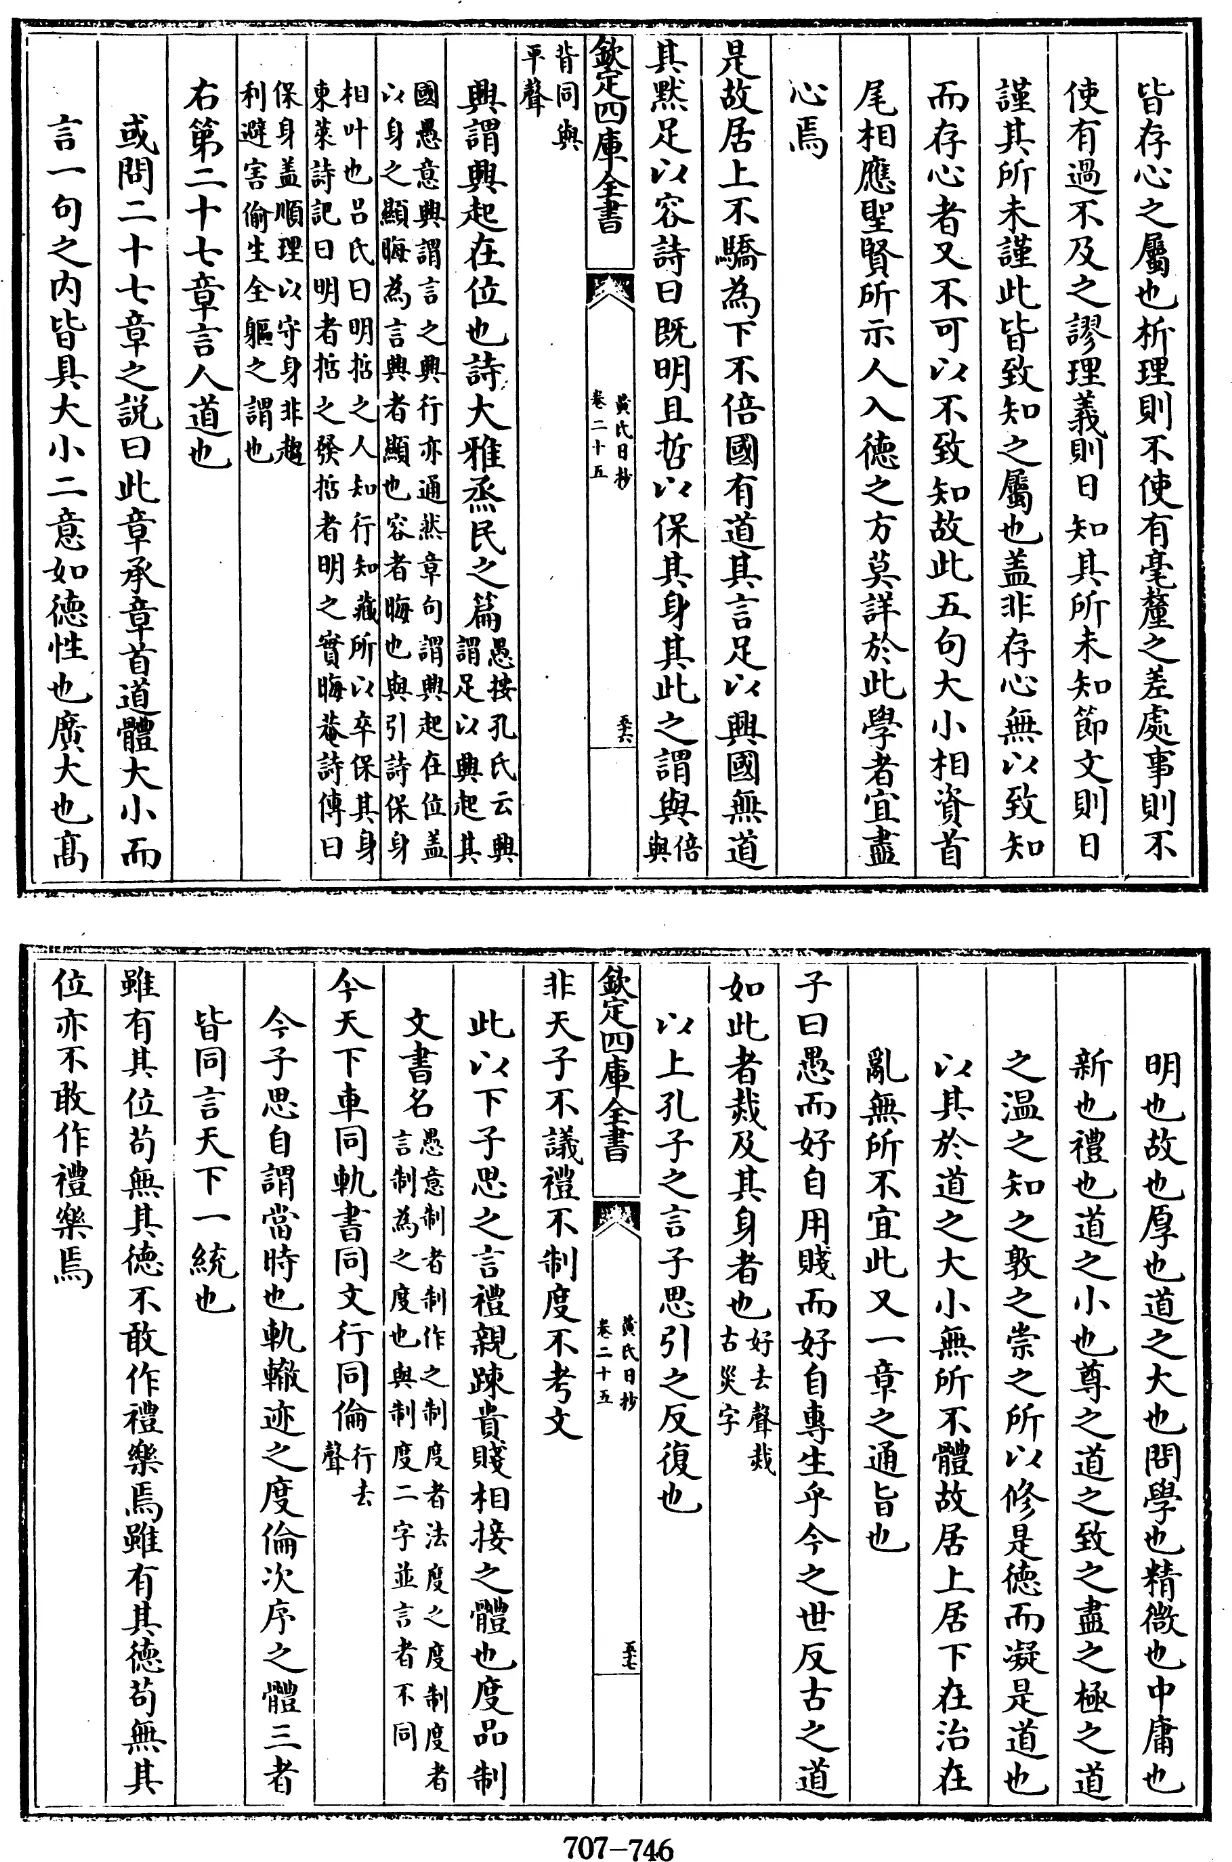 皆存心之屬也析理則不使有毫釐之差處事則不
使有過不及之謬理義則日知其所未知節文則日
謹其所未謹此皆致知之屬也盖非存心無以致知
而存心者又不可以不致知故此五句大小相資首
尾相應聖賢所示人入德之方莫詳於此學者宜盡
心焉
是故居上不驕為下不倍國有道其言足以興國無道
其黙足以容詩曰既明且哲以保其身其此之謂與倍
與
欽定四庫全書
黄氏日抄
卷二十五
五六
背同與
平聲
興謂興起在位也詩大雅烝民之篇愚按孔氏云興
謂足以興起其
國愚意興謂言之興行亦通然章句謂興起在位盖
以身之顯晦為言興者顯也容者晦也與引詩保身
相叶也吕氏曰明哲之人知行知藏所以卒保其身
東萊詩記曰明者哲之發哲者明之實晦菴詩傳曰
保身盖順理以守身非趨
利避害偷生全軀之謂也
右第二十七章言人道也
或問二十七章之説曰此章承章首道體大小而
言一句之内皆具大小二意如德性也廣大也髙
明也故也厚也道之大也問學也精微也中庸也
新也禮也道之小也尊之道之致之盡之極之道
之温之知之敦之崇之所以修是德而凝是道也
以其於道之大小無所不體故居上居下在治在
亂無所不宜此又一章之通旨也
子曰愚而好自用賤而好自專生乎今之世反古之道
如此者烖及其身者也好去聲烖
古災字
以上孔子之言子思引之反復也
欽定四庫全書
黄氏日抄
卷二十五
五七
非天子不議禮不制度不考文
此以下子思之言禮親踈貴賤相接之體也度品制
文書名愚意制者制作之制度者法度之度制度者
言制為之度也與制度二字並言者不同
今天下車同軌書同文行同倫行去
聲
今子思自謂當時也軌轍迹之度倫次序之體三者
皆同言天下一統也
雖有其位苟無其德不敢作禮樂焉雖有其德苟無其
位亦不敢作禮樂焉
707-746